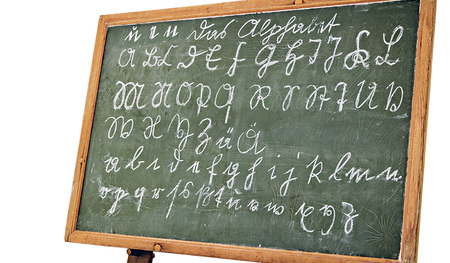 das Alphabet
A B C D E F G H I J K L
M N O P Q R S T U V
W X Y Z ä Ä
a b c d e f g h i j k l m n
o p q r ſ s ß t u v w x y z